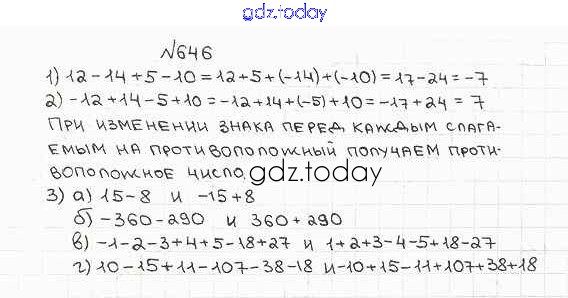 gdz.today
№646
1) 12-14+5-10=12+5+(-14)+(-10)=17-24=-7
2) -12+14-5+10=-12+14+(-5)+10=-17+24=7
ПРИ ИЗМЕНЕНИИ ЗНАКА ПЕРЕД КАЖДЫМ СЛАГА-
ЕМЫМ НА ПРОТИВОПОЛОЖНЫЙ ПОЛУЧАЕМ ПРОТИ-
ВОПОЛОЖНОЕ ЧИСЛО.
gdz.today
3) а) 15-8 и -15+8
б) -360-290 и 360+290
в) -1-2-3+4+5-18+27 и 1+2+3-4-5+18-27
г) 10-15+11-107-38-18 и -10+15-11+107+38+18